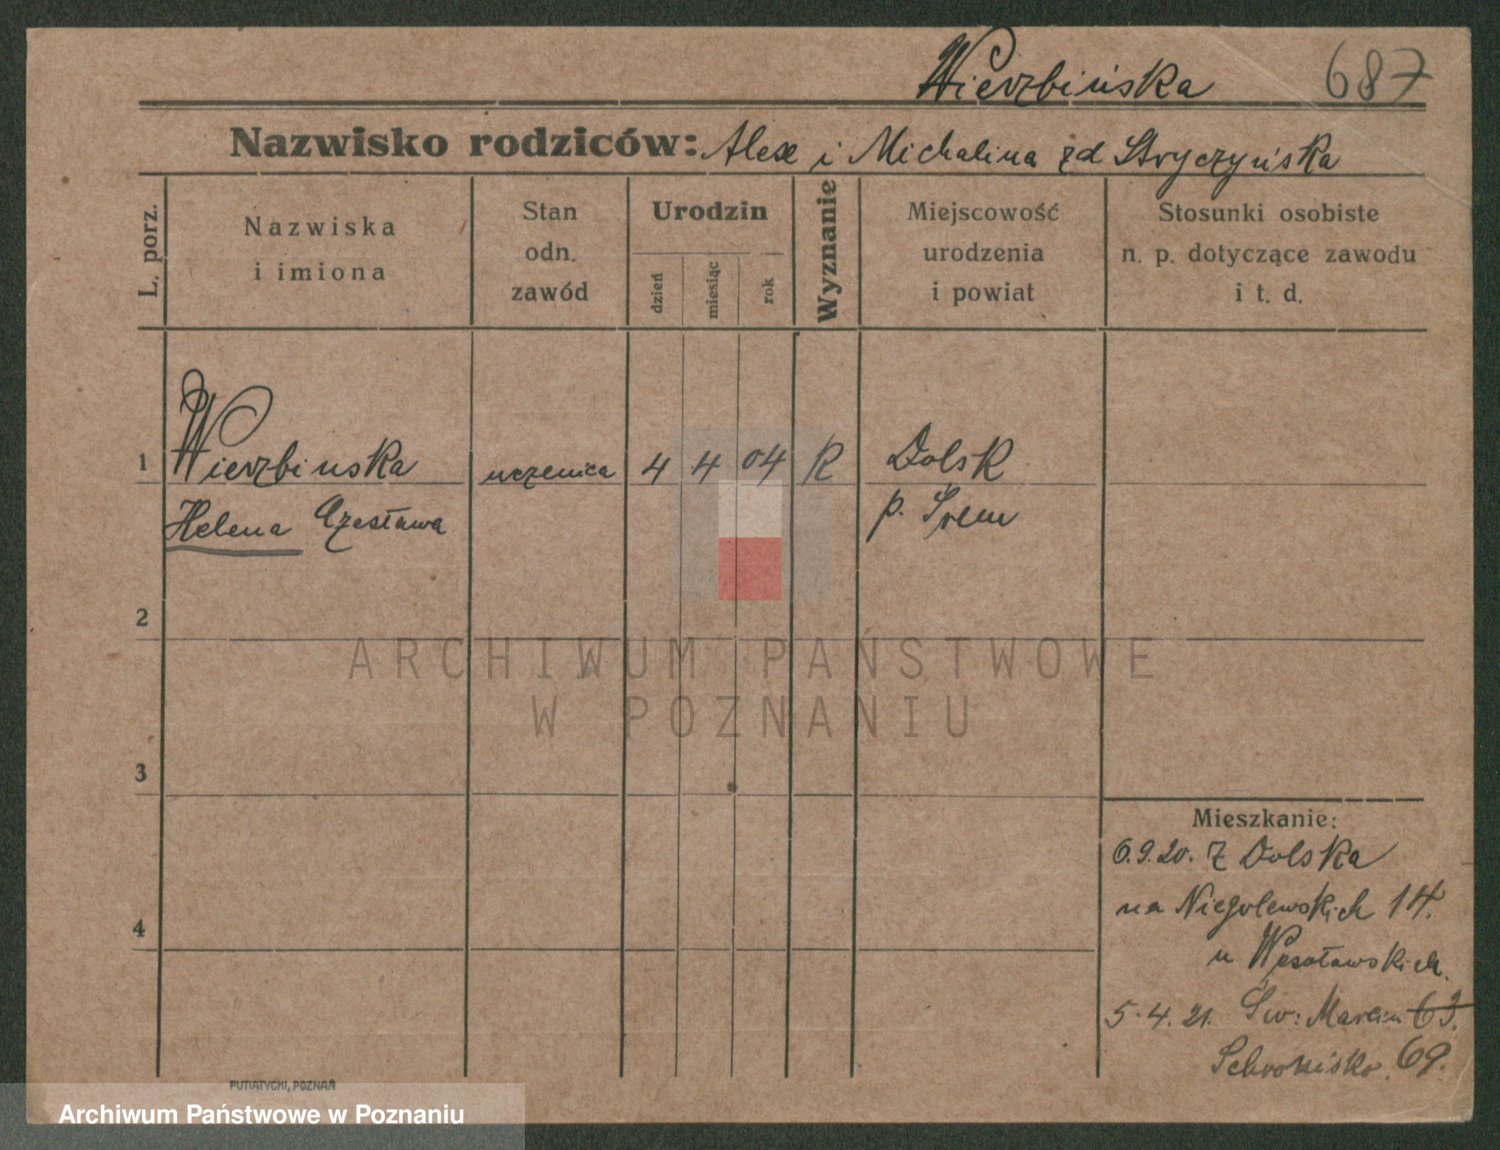 Wierzbińska 687
Nazwisko rodziców: Alex i Michalina zd Stryczyńska
L. porz.
Nazwiska
i imiona
Stan
odn.
zawód
Urodzin
dzień
miesiąc
rok
Wyznanie
Miejscowość
urodzenia
i powiat
Stosunki osobiste
n. p. dotyczące zawodu
i t. d.
1 Wierzbinska uczenica 4 4 04 R Dolsk
Helena Czesława p. Śrem
2
ARCHIWUM PAŃSTWOWE
W POZNANIU
3
Mieszkanie:
6.9.20. Z Dolska
na Niegolewskich 14.
4
u Wesołowskich.
5.4.21. Św: Marcin 63.
Schronisko. 69.
PUTIATYCKI, POZNAŃ
Archiwum Państwowe w Poznaniu